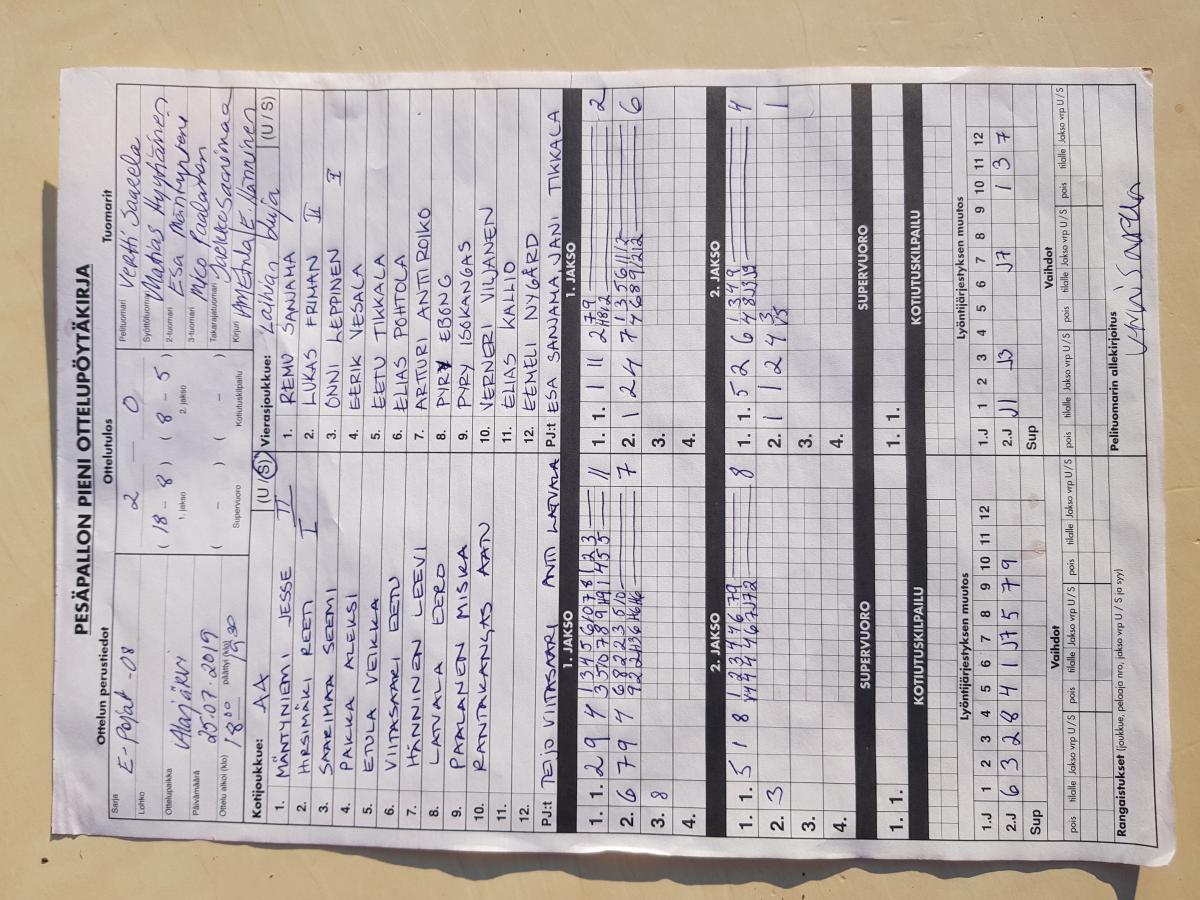 PESÄPALLON PIENI OTTELUPÖYTÄKIRJA
Ottelun perustiedot
Sarja E-Pojat -08
Lohko
Ottelupaikka Alajärvi
Päivämäärä 25.07.2019
Ottelu alkoi (klo) 18.00 päättyi (klo) 19.30
Ottelutulos
2 — 0
( 18 - 8 ) ( 8 - 5 )
1. jakso 2. jakso
( - ) ( - )
Supervuoro Kotiutuskilpailu
Tuomarit
Pelituomari Vertti Saarela
Syöttötuomari Matias Hyyhänen
2-tuomari Esa Mäntyniemi
3-tuomari Mico Paalanen
Takarajatuomari
Kirjuri
Kotijoukkue: AA (U/S)
1. MÄNTYNIEMI JESSE II
2. HIRSIMÄKI REETI I
3. SAARIMAA SEEMI
4. PAKKA ALEKSI
5. ETULA VEIKKA
6. VIITASAARI EETU
7. HÄNNINEN LEEVI
8. LATVALA EERO
9. PAALANEN MISKA
10. RANTAKANGAS AAN
11.
12.
PJ:t TEIJO VIITASAARI ANTI LATVALA
Vierasjoukkue: (U / S)
1. REMU SANJAMA
2. LUKAS FRIMAN II
3. ONNI LEPPINEN I
4. EERIK VESALA
5. EETU TIKKALA
6. ELIAS POHTOLA
7. ARTTURI ANTTIROIKO
8. PYRY EBONG
9. PYRY ISOKANGAS
10. VERNERI VILJANEN
11. ELIAS KALLIO
12. EEMELI NYGÅRD
PJ:t ESA SANJAMA, JANI TIKKALA
1. JAKSO
1. 1. 2 9 4
11
2. 6 7 9 4
7
3. 8
4.
1. JAKSO
1. 1. 1 11 2
2
2. 1 2 4 7
6
3.
4.
2. JAKSO
1. 1. 5 1 8
8
2. 3
3.
4.
2. JAKSO
1. 1. 5 2 6
4
2. 1 1 2 4
1
3.
4.
SUPERVUORO
1. 1.
SUPERVUORO
1. 1.
KOTIUTUSKILPAILU
KOTIUTUSKILPAILU
Lyöntijärjestyksen muutos
1 2 3 4 5 6 7 8 9 10 11 12
1.J
2.J 6 3 2 8 4 1 J7 5 7 9
Sup
Lyöntijärjestyksen muutos
1 2 3 4 5 6 7 8 9 10 11 12
1.J
2.J J1 J3 J7 1 3 7
Sup
Vaihdot
pois tilalle Jakso vrp U/S pois tilalle Jakso vrp U/S pois tilalle Jakso vrp U/S
Vaihdot
pois tilalle Jakso vrp U/S pois tilalle Jakso vrp U/S pois tilalle Jakso vrp U/S
Rangaistukset (joukkue, pelaaja nro, jakso vrp U / S ja syy)
Pelituomarin allekirjoitus